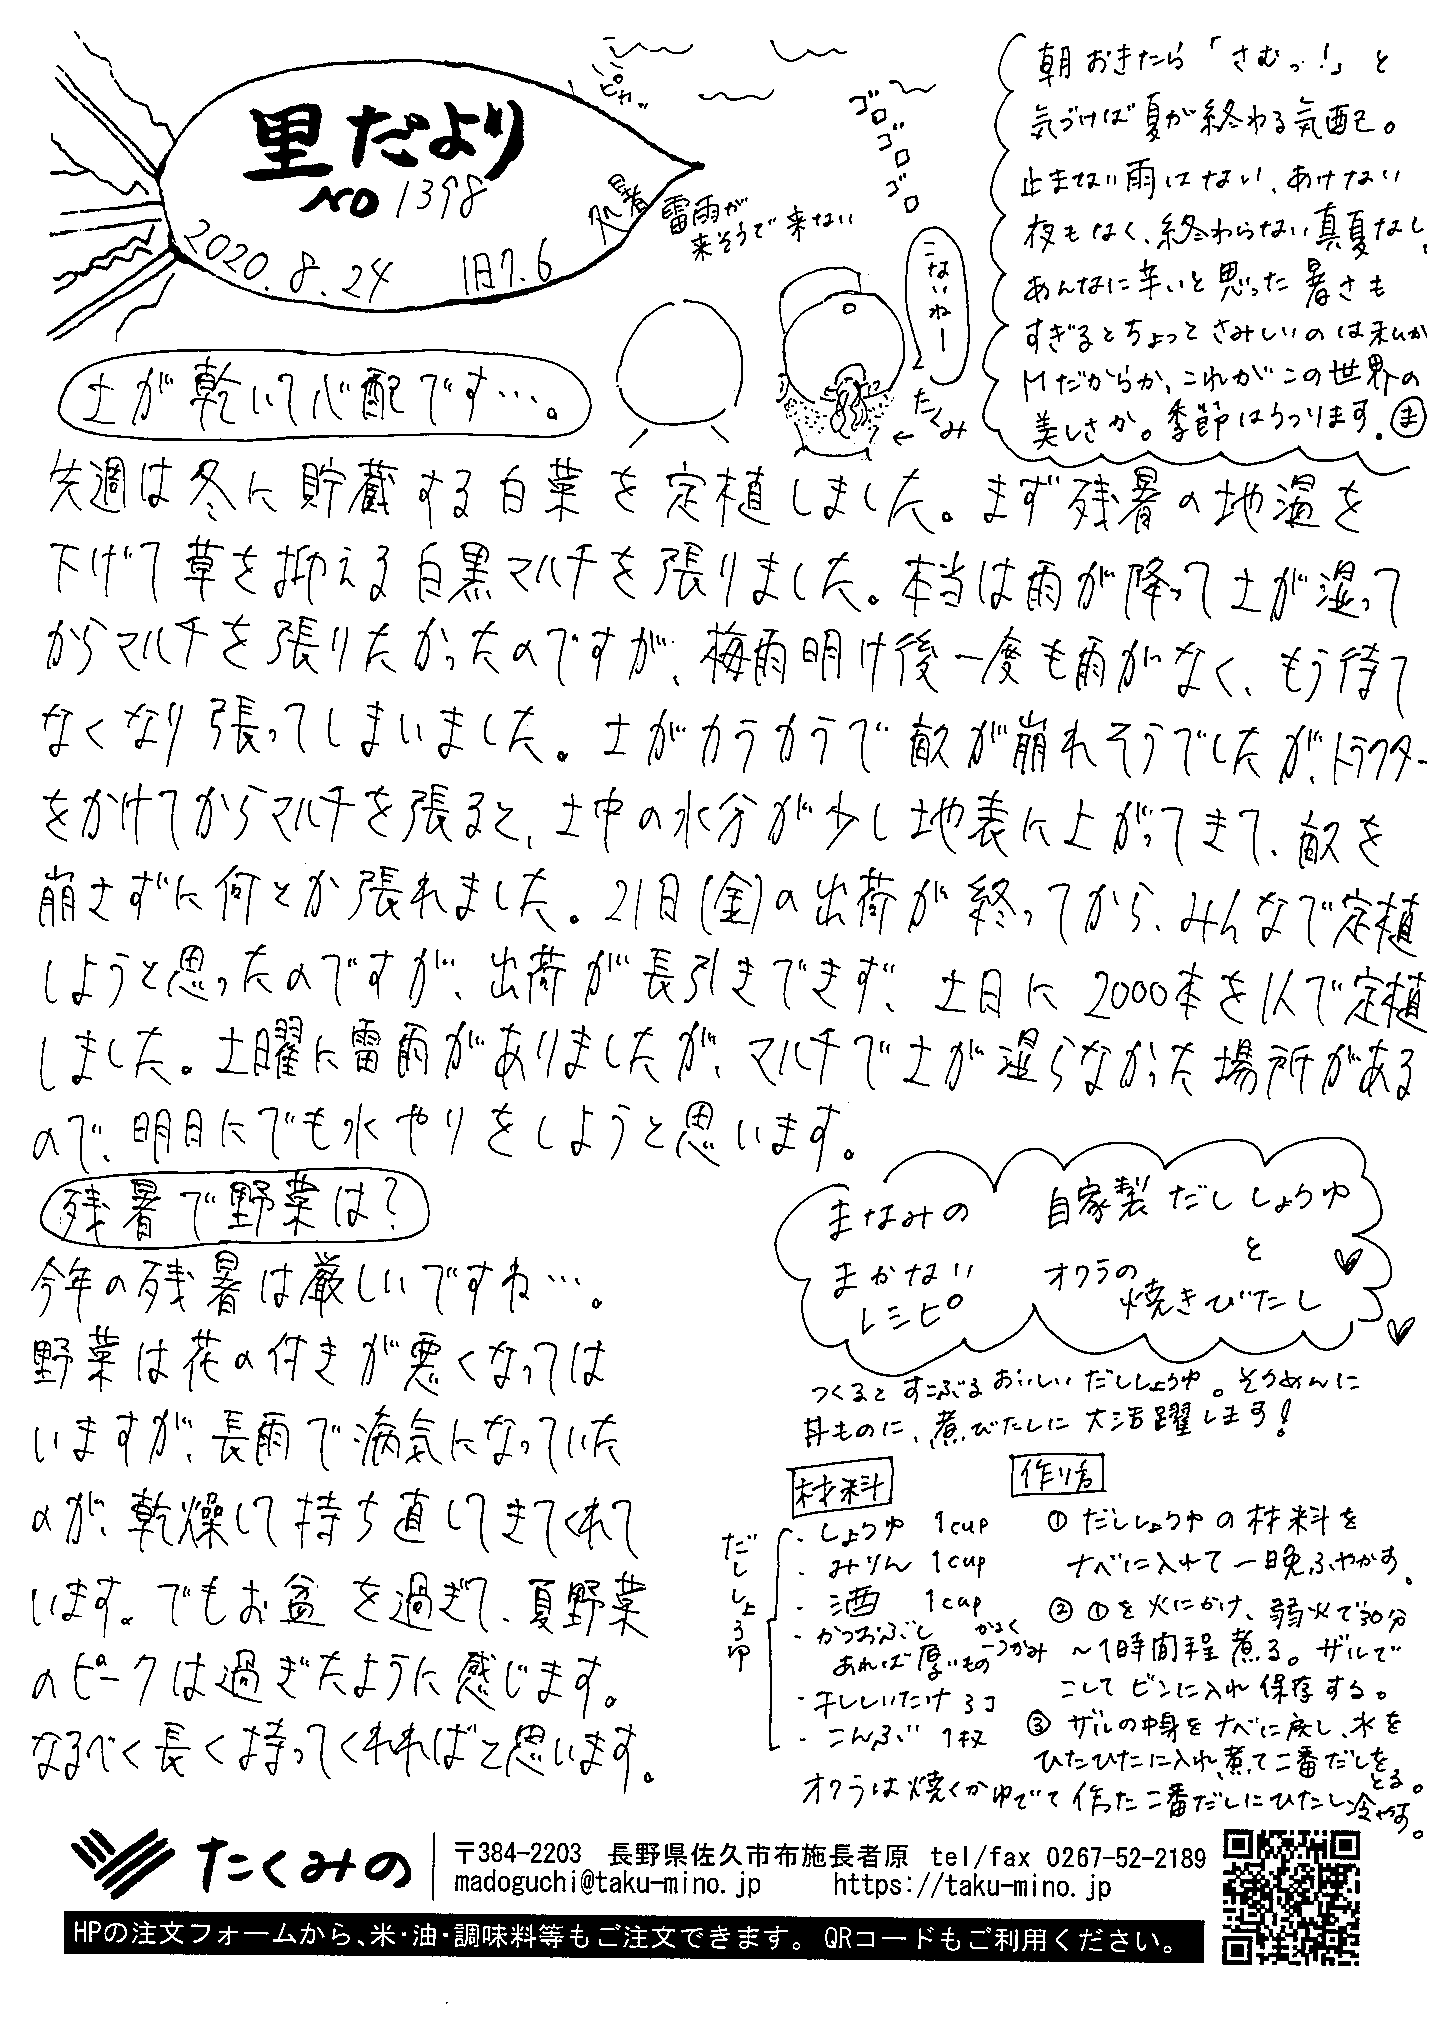 里だより
NO 1398
2020.8.24 旧7.6 処暑
ピカッ
ゴロゴロゴロ
雷雨が
来そうで来ない
こないねー
たくみ
朝おきたら「さむっ!」と
気づけば夏が終わる気配。
止まない雨はない、あけない
夜もなく、終わらない真夏なし、
あんなに辛いと思った暑さも
すぎるとちょっとさみしいのは私が
Mだからか、これがこの世界の
美しさか。季節はうつります。ま
土が乾いて心配です…。
先週は冬に貯蔵する白菜を定植しました。まず残暑の地温を
下げて草を抑える白黒マルチを張りました。本当は雨が降って土が湿って
からマルチを張りたかったのですが、梅雨明け後一度も雨がなく、もう待て
なくなり張ってしまいました。土がカラカラで畝が崩れそうでしたが、トラクター
をかけてからマルチを張ると、土中の水分が少し地表に上がってきて、畝を
崩さずに何とか張れました。21日(金)の出荷が終ってから、みんなで定植
しようと思ったのですが、出荷が長引きできず、土日に2000本を1人で定植
しました。土曜に雷雨がありましたが、マルチで土が湿らなかった場所がある
ので、明日にでも水やりをしようと思います。
残暑で野菜は?
今年の残暑は厳しいですね…。
野菜は花の付きが悪くなっては
いますが、長雨で病気になっていた
のが、乾燥して持ち直してきてくれて
います。でもお盆を過ぎて、夏野菜
のピークは過ぎたように感じます。
なるべく長く持ってくれればと思います。
まなみの
まかない
レシピ
自家製だししょうゆ
と
オクラの
焼きびたし
つくるとすこぶるおいしいだししょうゆ。そうめんに
丼ものに、煮びたしに大活躍します!
材料
だししょうゆ
・しょうゆ 1cup
・みりん 1cup
・酒 1cup
・かつおぶし かるく
あれば厚いもの 一つかみ
・干ししいたけ 3コ
・こんぶ 1枚
作り方
① だししょうゆの材料を
ナベに入れて一晩ふやかす。
② ①を火にかけ、弱火で30分
〜1時間程煮る。ザルで
こしてビンに入れ保存する。
③ ザルの中身をナベに戻し、水を
ひたひたに入れ、煮て二番だしを
とる。
オクラは焼くかゆでて作った二番だしにひたし冷やす。
たくみの
〒384-2203 長野県佐久市布施長者原 tel/fax 0267-52-2189
madoguchi@taku-mino.jp https://taku-mino.jp
HPの注文フォームから、米・油・調味料等もご注文できます。QRコードもご利用ください。